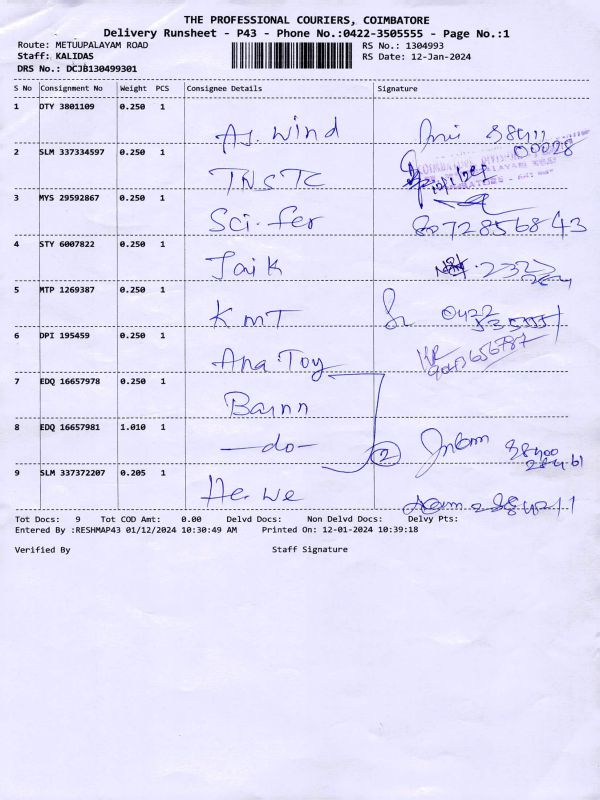 THE PROFESSIONAL COURIERS, COIMBATORE
Delivery Runsheet - P43 - Phone No.:0422-3505555 - Page No.:1
Route: METUUPALAYAM ROAD RS No.: 1304993
Staff: KALIDAS RS Date: 12-Jan-2024
DRS No.: DCJB130499301
S No Consignment No Weight PCS Consignee Details Signature
1 OTY 3801109 0.250 1
AJ. Wind
2 SLM 337334597 0.250 1
00028
TNSTC
3 MYS 29592867 0.250 1
Sci-fer 8072856843
4 STY 6007822 0.250 1
Jaik
5 MTP 1269387 0.250 1
KMT 0422
6 DPI 195459 0.250 1
Ana Toy
7 EDQ 16657978 0.250 1
Bainn
8 EDQ 16657981 1.010 1
-do- 2
9 SLM 337372207 0.205 1
He. We
Tot Docs: 9 Tot COD Amt: 0.00 Delvd Docs: Non Delvd Docs: Delvy Pts:
Entered By :RESHMAP43 01/12/2024 10:30:49 AM Printed On: 12-01-2024 10:39:18
Verified By Staff Signature